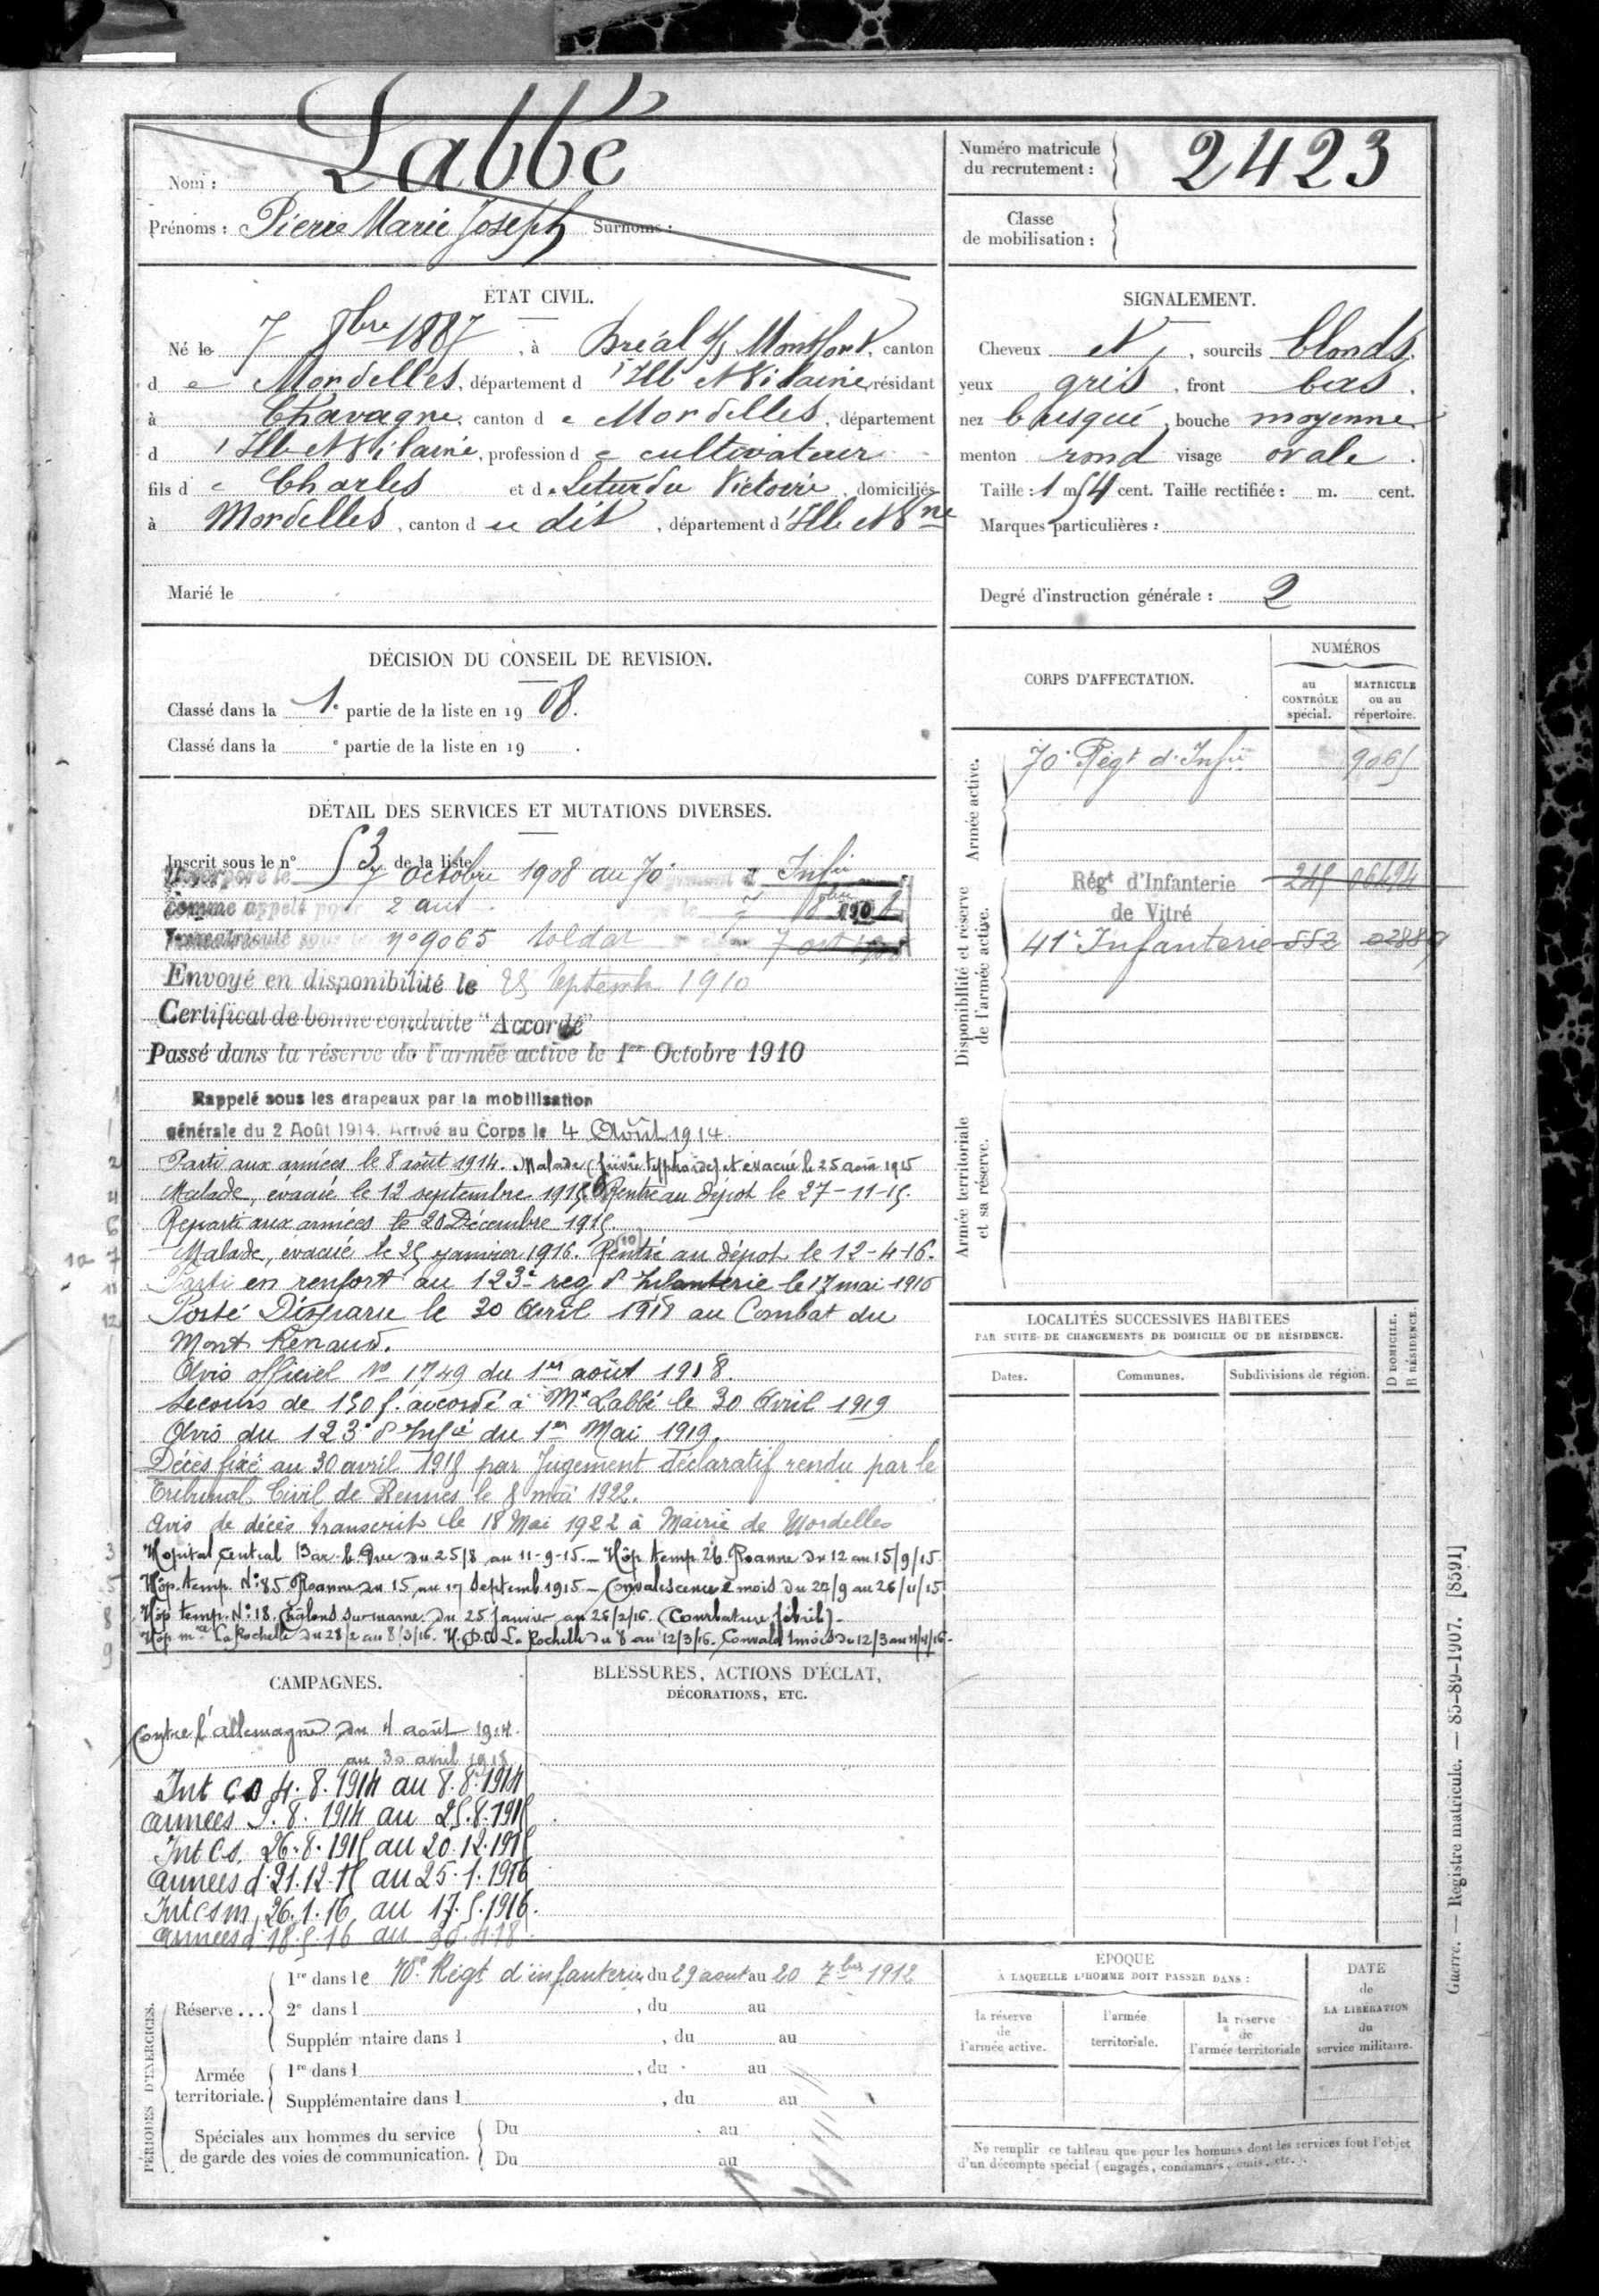 Nom : Labbé
Prénoms : Pierre Marie Joseph Surnoms :
Numéro matricule
du recrutement : 2423
Classe
de mobilisation :
ÉTAT CIVIL.
Né le 7 8bre 1887, à Bréal s/s Montfort, canton
de Mordelles, département d'Ille et Vilaine, résidant
à Chavagne, canton de Mordelles, département
d'Ille et Vilaine, profession de cultivateur
fils de Charles et de Leturdu Victoire, domiciliés
à Mordelles, canton du dit, département d'Ille et Vne
Marié le
SIGNALEMENT.
Cheveux et, sourcils blonds,
yeux gris, front bas.
nez busqué, bouche moyenne
menton rond visage ovale.
Taille : 1 m 54 cent. Taille rectifiée : m. cent.
Marques particulières :
Degré d'instruction générale : 2
DÉCISION DU CONSEIL DE REVISION.
Classé dans la 1e partie de la liste en 1908.
Classé dans la e partie de la liste en 19 .
DÉTAIL DES SERVICES ET MUTATIONS DIVERSES.
Inscrit sous le n° 53 de la liste
Incorporé le 7 octobre 1908 au 70e Infie
comme appelé pour 2 ans.
Immatriculé sous le n° 9065 soldat
Envoyé en disponibilité le 25 Septembre 1910
Certificat de bonne conduite "Accordé"
Passé dans la réserve de l'armée active le 1er Octobre 1910
Rappelé sous les drapeaux par la mobilisation
générale du 2 Août 1914. Arrivé au Corps le 4 Août 1914.
Parti aux armées le 8 août 1914. Malade (fièvre typhoïde) et évacué le 25 août 1915
Malade, évacué le 12 septembre 1915 Rentré au dépôt le 27-11-15.
Reparti aux armées le 20 Décembre 1915.
Malade, évacué le 25 janvier 1916. (10) Rentré au dépôt le 12-4-16.
Parti en renfort au 123e reg d'Infanterie le 17 mai 1916
Porté Disparu le 30 Avril 1918 au Combat du
Mont Renaud.
Avis officiel No 1749 du 1er août 1918.
Secours de 150 f. accordé à Mr Labbé le 30 Avril 1919
Avis du 123e d'Infie du 1er Mai 1919.
Décès fixé au 30 avril 1918 par Jugement déclaratif rendu par le
Tribunal Civil de Rennes le 8 mai 1922.
Avis de décès transcrit le 18 Mai 1922 à Mairie de Mordelles
Hopital Central Bar-le-Duc du 25/8 au 11-9-15. - Hôp. temp. 26. Roanne du 12 au 15/9/15.
Hôp. temp. N: 85 Roanne du 15 au 17 Septemb. 1915 - Convalescence 2 mois du 27/9 au 26/11/15
Hôp. temp. N: 18. Châlons-sur-marne. du 25 janvier au 26/2/16. (Courbature fébrile).-
Hôp. mre La Rochelle du 28/2 au 8/3/16. H.D.C. La Rochelle du 8 au 12/3/16. Convalet 1 mois du 12/3 au 11/4/16.
CORPS D'AFFECTATION.
NUMÉROS
au CONTRÔLE spécial.
MATRICULE ou au répertoire.
Armée active.
70e Régt d'Infie 9065
Disponibilité et réserve de l'armée active.
Régt d'Infanterie 245 06424
de Vitré
41e Infanterie 552 02889
Armée territoriale et sa réserve.
LOCALITÉS SUCCESSIVES HABITÉES
PAR SUITE DE CHANGEMENTS DE DOMICILE OU DE RÉSIDENCE.
Dates. Communes. Subdivisions de région. D DOMICILE. R RÉSIDENCE.
CAMPAGNES.
Contre l'allemagne du 4 août 1914.
au 30 avril 1918
Int CD 4.8.1914 au 8.8.1914
armées 9.8.1914 au 25.8.1915
Int CS. 26.8.1915 au 20.12.1915
armées d. 21.12.15 au 25.1.1916
Int CSM. 26.1.16 au 17.5.1916.
armées d 18.5.16 au 30.4.18
BLESSURES, ACTIONS D'ÉCLAT,
DÉCORATIONS, ETC.
PÉRIODES D'EXERCICES.
Réserve...
1re dans le 70e Régt d'infanterie du 29 aout au 20 7bre 1912
2e dans l , du au
Supplémentaire dans l , du au
Armée territoriale.
1re dans l , du au
Supplémentaire dans l , du au
Spéciales aux hommes du service
de garde des voies de communication.
Du au
Du au
ÉPOQUE
À LAQUELLE L'HOMME DOIT PASSER DANS :
la réserve de l'armée active.
l'armée territoriale.
la réserve de l'armée territoriale
DATE de LA LIBÉRATION du service militaire.
Ne remplir ce tableau que pour les hommes dont les services font l'objet
d'un décompte spécial (engagés, condamnés, omis, etc.).
Guerre. — Registre matricule. — 85-89-1907. [8591]